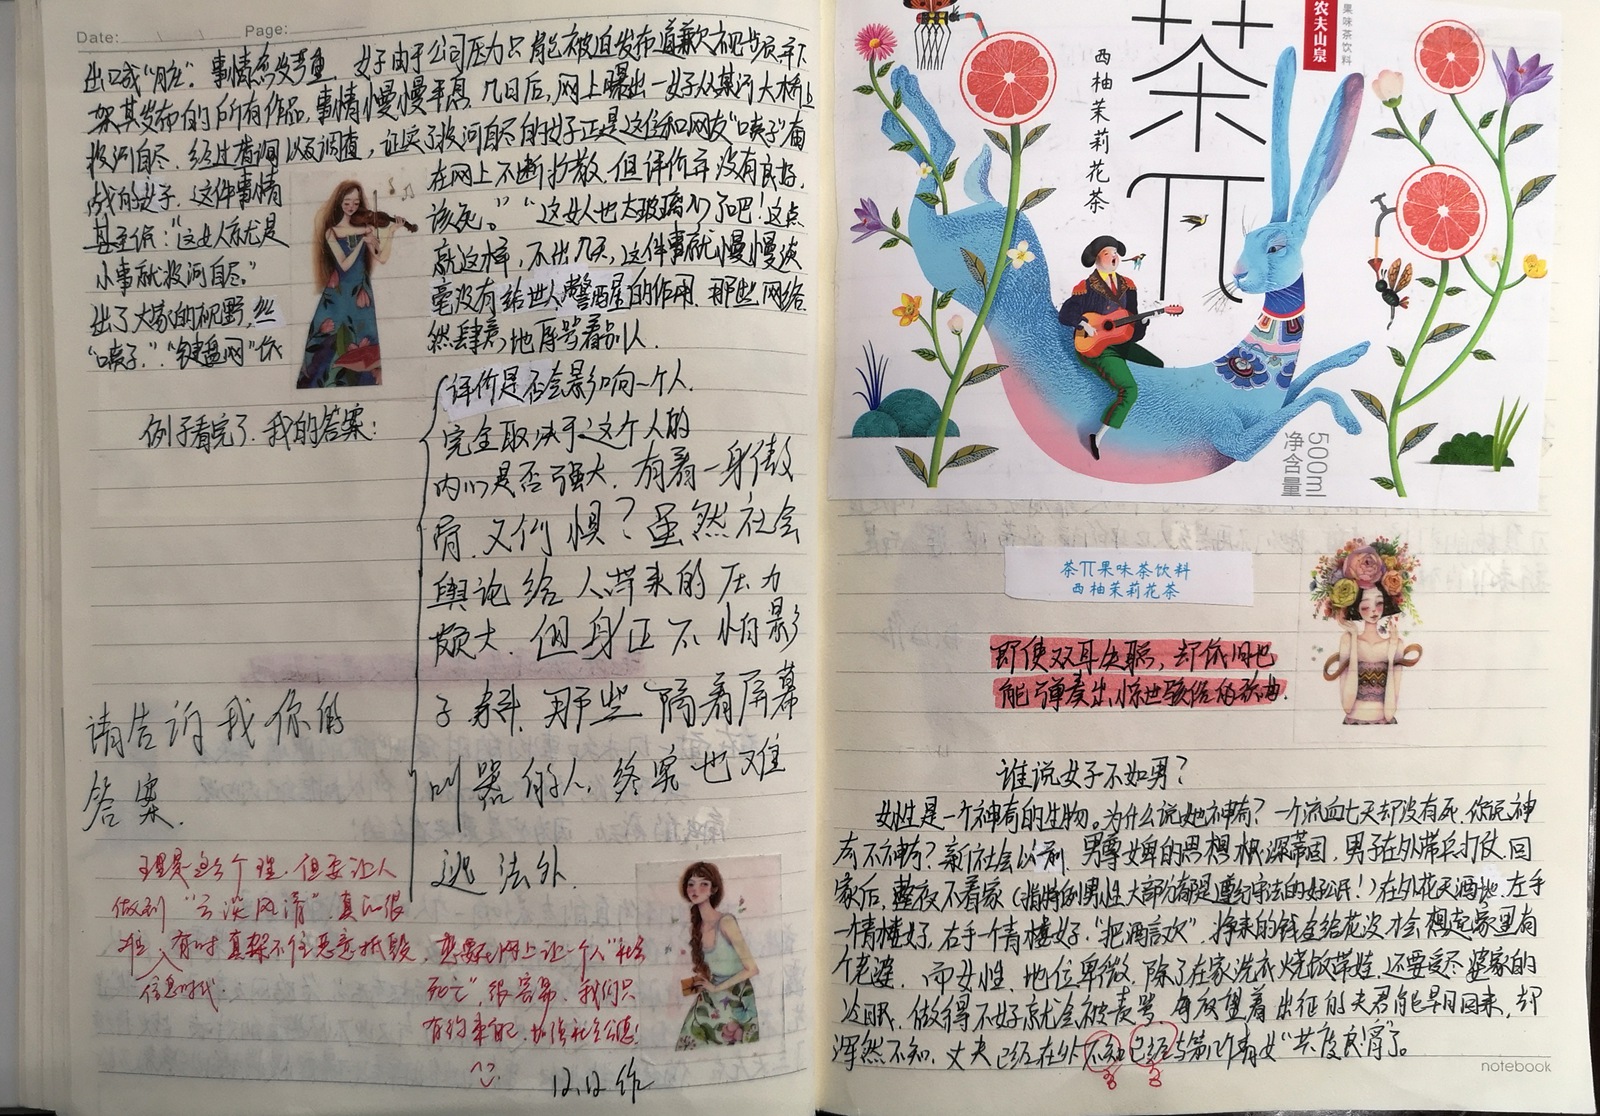 Date:
Page:
出口成"脏"。事情愈发严重，女子由于公司压力只能被迫发布道歉视频并下
架其发布的所有作品，事情慢慢平息，几日后，网上曝出一女子从某河大桥上
投河自尽，经过查询以及调查，证实了投河自尽的女子正是这位和网友"口嗨子"角
战的女子，这件事情
在网上不断扩散，但评价并没有良好，
甚至低："这女人就是
该死。""这女人也太玻璃心了吧！这点
小事就投河自尽。"
就这样，不出几天，这件事就慢慢淡
出了大家的视野，丝
毫没有给世人警醒的作用，那些网络
"口嗨子""键盘网"依
然肆意地辱骂着别人。
例子看完了，我的答案：
评价是否会影响一个人，
完全取决于这个人的
内心是否强大，有着一身傲
骨，又何惧？虽然社会
舆论给人带来的压力
颇大，但身正不怕影
子斜，那些隔着屏幕
叫嚣的人，终究也难
逃法外。
请告诉我你的
答案。
理是这个理，但要让人
做到"云淡风清"，真的很
难，有时真架不住恶意抵毁，想要在网上让一个人"社会
信息时代
死亡"，很容易，我们只
有约束自己，
12.12 作
农夫山泉
果味茶饮料
茶π
西柚茉莉花茶
净含量
500ml
茶π果味茶饮料
西柚茉莉花茶
即使双耳失聪，却依旧也
能弹奏出惊世骇俗的歌曲。
谁说女子不如男？
女性是一个神奇的生物。为什么说她神奇？一个流血七天却没有死，你说神
奇不神奇？新社会以前，男尊女卑的思想根深蒂固，男子在外带兵打仗，回
家后，整夜不着家（指特例男性，大部分都是遵纪守法的好公民！）在外花天酒地，左手
一青楼女子，右手一个青楼女子，"把酒言欢"，挣来的钱全给花没才会想起家里有
个老婆，而女性，地位卑微，除了在家洗衣烧饭带娃，还要受尽婆家的
冷眼，做得不好就会被责骂，每夜望着出征的夫君能早日回来，却
浑然不知，丈夫已经在外不知已经与第几个青女"共度良宵"了。
notebook